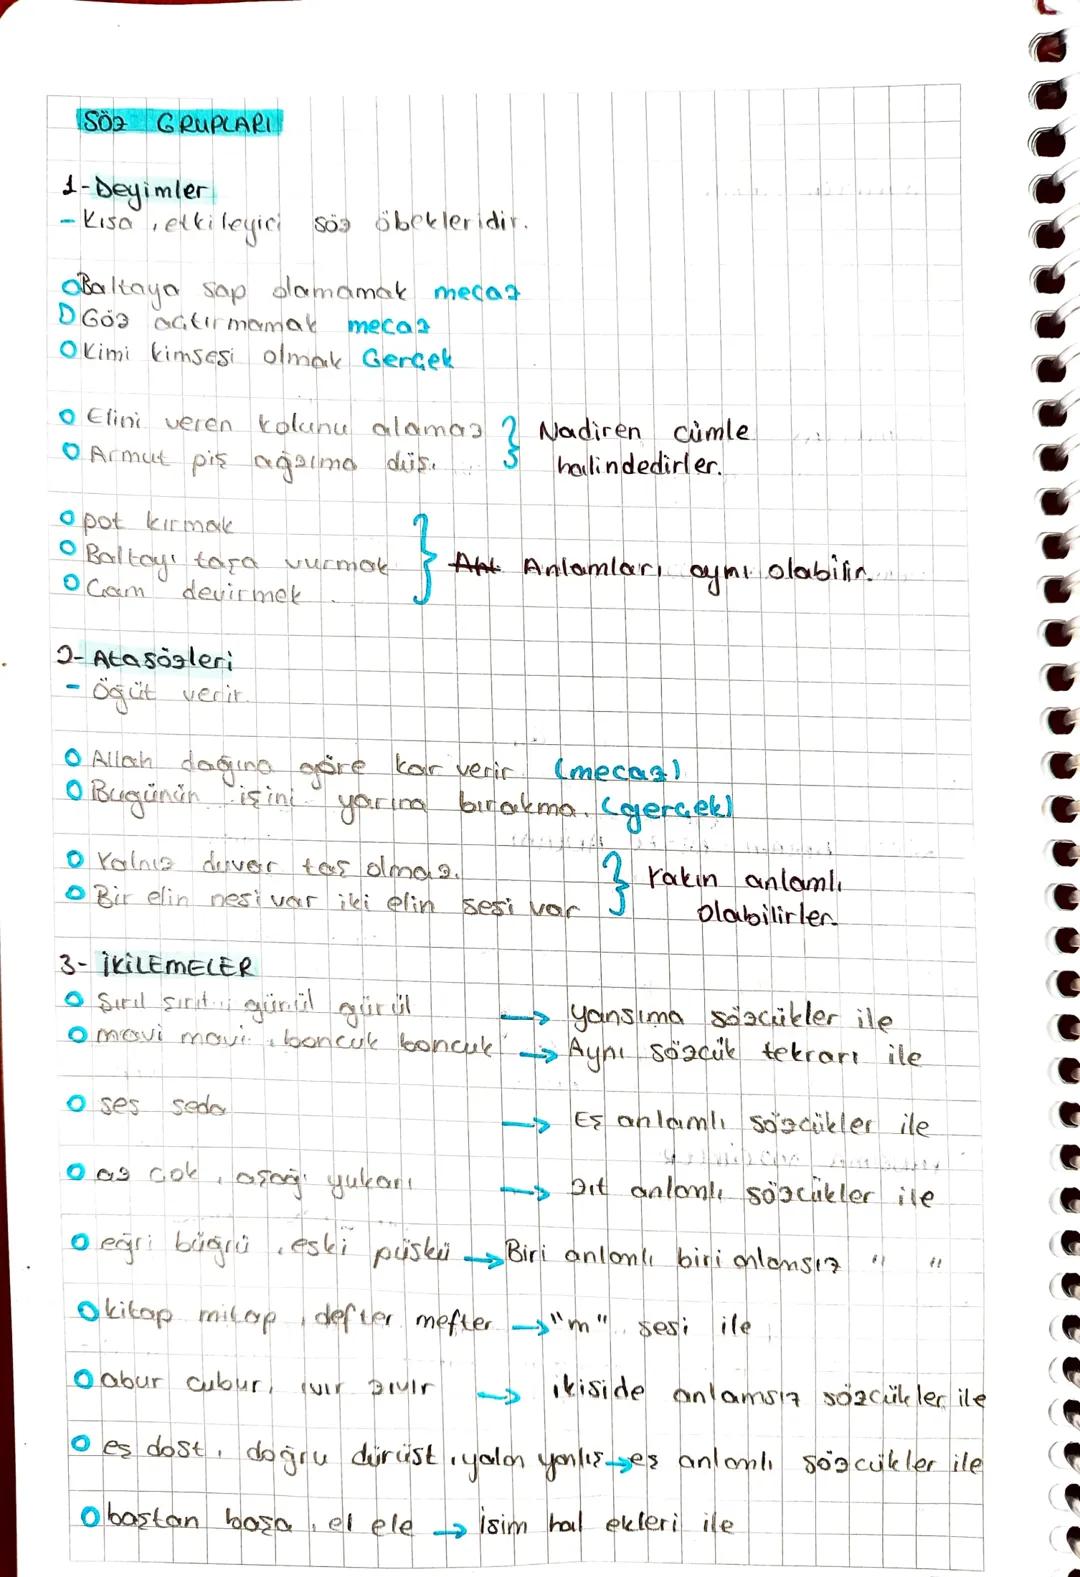 SÖZ GRUPLARI
1-Deyimler
- Kısa, etkileyici söz öbekleridir.
Baltaya sap olamamak mecaz
Göz açtırmamak mecaz
Kimi kimsesi olmak Gerçek
Elini veren kolunu alamaz } Nadiren cümle
Armut piş ağzıma düş. halindedirler.
pot kırmak
Baltayı taşa vurmak } Anlamları aynı olabilir.
Çam devirmek
2- Atasözleri
- Öğüt verir.
Allah dağına göre kar verir (mecaz)
Bugünün işini yarına bırakma. (gerçek)
Yalnız duvar taş olmaz. } Yakın anlamlı
Bir elin nesi var iki elin sesi var olabilirler.
3- İKİLEMELER
gürül gürül → yansıma sözcükler ile
mavi mavi, boncuk boncuk → Aynı sözcük tekrarı ile
ses seda → Eş anlamlı sözcükler ile
az çok, aşağı yukarı → Zıt anlamlı sözcükler ile
eğri büğrü, eski püskü → Biri anlamlı biri anlamsız " "
kitap mitap, defter mefter → "m" sesi ile
abur cubur, ıvır zıvır → ikiside anlamsız sözcükler ile
eş dost, doğru dürüst, yalan yanlış → eş anlamlı sözcükler ile
baştan başa, el ele → isim hal ekleri ile